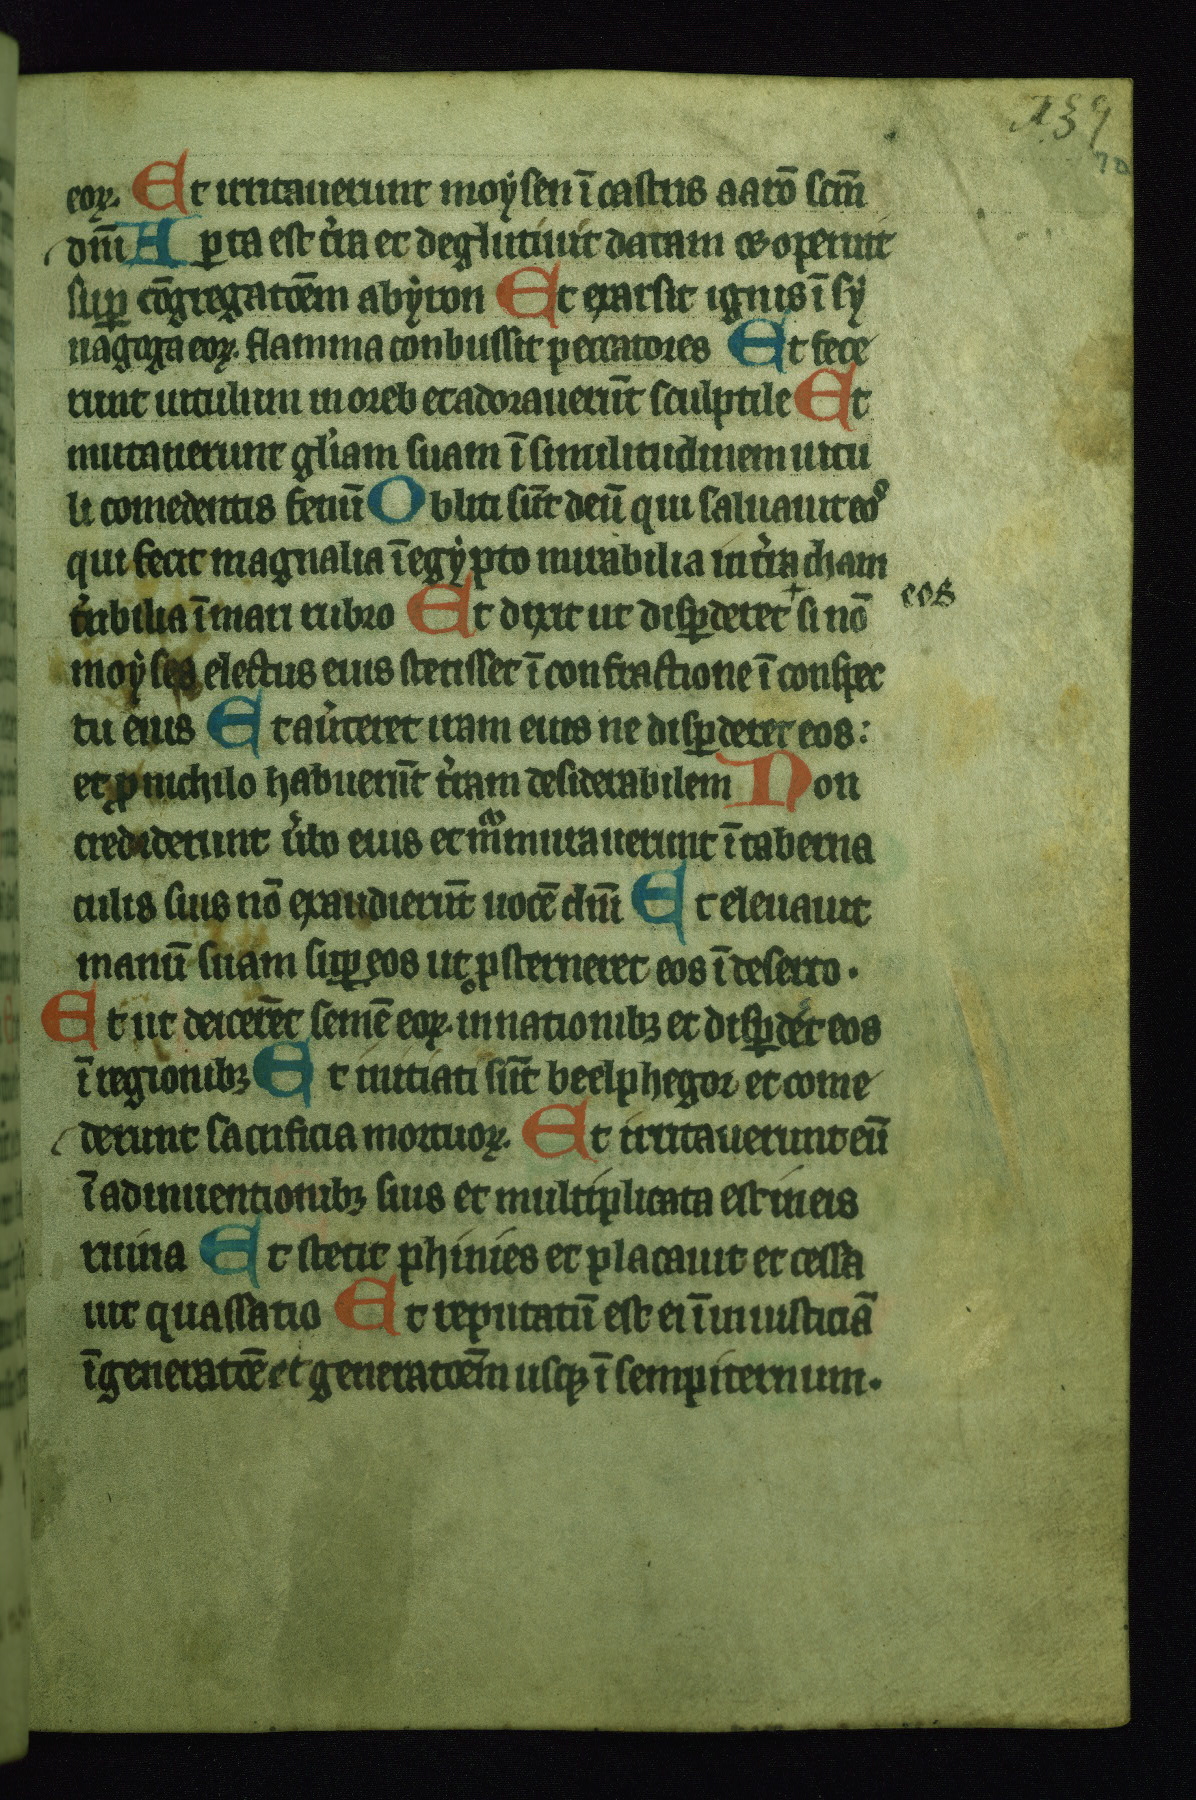 139
70
eoꝝ. Et irritauerunt moẏsen ī castris aarō scm̄
dn̄i Aꝑta est tͥra et deglutiuit datam & operuit
suꝑ cōgregatōem abẏron Et exarsit ignis ī sẏ
nagoga eoꝝ. flamma conbussit peccatores Et fece
runt uitulum moreb et adorauerūt sculptile Et
mutauerunt glͥam suam ī similitudinem uitu
li comedentis fenū Obliti sūt deū qui saluauit eos
qui fecit magnalia ī egẏpto mirabilia in tͥra cham
tͥribilia ī mari rubro Et dixit ut disꝑderet + si nō
eos
moẏses electus eius stetisset ī confractione ī conspec
tu eius Et auͥteret iram eius ne disꝑderet eos:
et ꝓ nichilo habuerūt tͥram desiderabilem Non
crediderunt uͥbo eius et mͬmurauerunt ī taberna
culis suis nō exaudierūt uocē dn̄i Et eleuauit
manū suam suꝑ eos ut ꝓsterneret eos ī deserto.
Et ut deicerēt semē eoꝝ. in nationibꝫ et disꝑdēt eos
ī regionibꝫ Et initiati sūt beelphegor et come
derunt sacrificia mortuoꝝ. Et irritauerunt eū
ī adinuentionibꝫ suis et multiplicata est in eis
ruina Et stetit phinies et placauit et cessa
uit quassatio Et reputatū est ei ī iusticiā
ī generatōē et generatōem usqꝫ ī sempiternum.